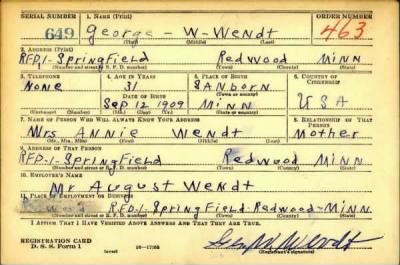 SERIAL NUMBER 1. NAME (Print) ORDER NUMBER
649 George - W - Wendt 463
(First) (Middle) (Last)
2. ADDRESS (Print)
RFD, 1 - Springfield Redwood Minn
(Number and street or R. F. D. number) (Town) (County) (State)
3. TELEPHONE 4. AGE IN YEARS 5. PLACE OF BIRTH 6. COUNTRY OF CITIZENSHIP
None 31 Sanborn
DATE OF BIRTH (Town or county)
Sep 12 1909 Minn USA
(Exchange) (Number) (Mo.) (Day) (Yr.) (State or country)
7. NAME OF PERSON WHO WILL ALWAYS KNOW YOUR ADDRESS 8. RELATIONSHIP OF THAT PERSON
Mrs Annie Wendt Mother
(Mr., Mrs., Miss) (First) (Middle) (Last)
9. ADDRESS OF THAT PERSON
RFD-1-Springfield Redwood Minn
(Number and street or R. F. D. number) (Town) (County) (State)
10. EMPLOYER'S NAME
Mr August Wendt
11. PLACE OF EMPLOYMENT OR BUSINESS
RFD-1-Springfield-Redwood-Minn.
(Number and street or R. F. D. number) (Town) (County) (State)
I AFFIRM THAT I HAVE VERIFIED ABOVE ANSWERS AND THAT THEY ARE TRUE.
REGISTRATION CARD
D. S. S. Form 1 (over) 16-17105 (Registrant's signature)